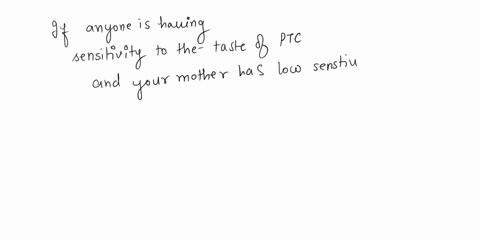 If anyone is having
sensitivity to the taste of PTC
and your mother has low senstiv